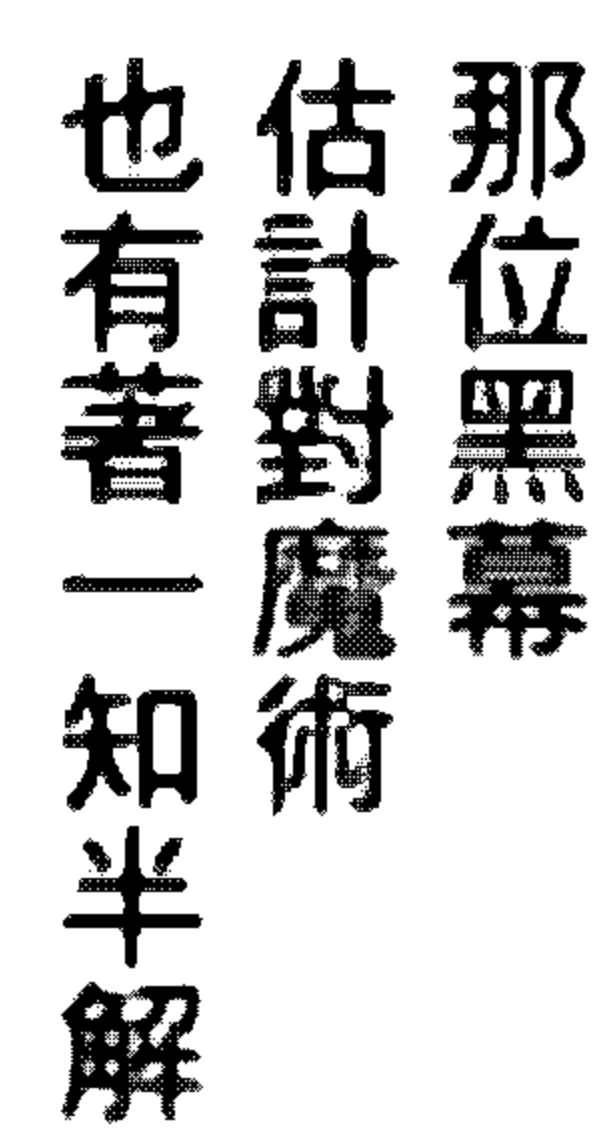 那位黑幕
估計對魔術
也有著一知半解